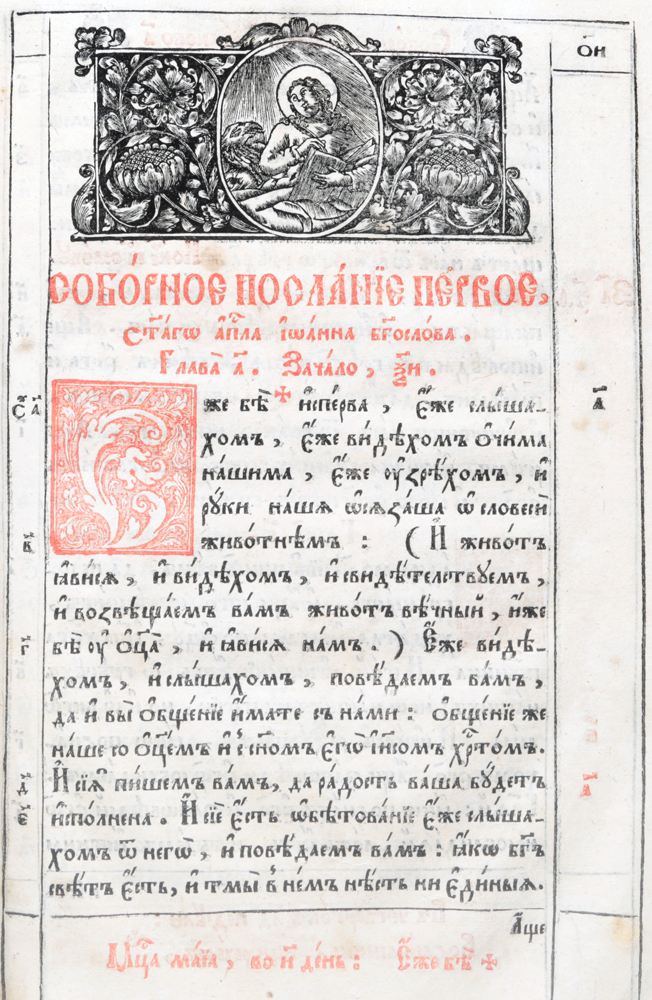 ѻ҃и
СОБО́РНОЕ ПОСЛА́НЇЕ ПЕ́РВОЕ,
Ст҃а́гѡ а҆пⷭ҇ла І҆ѡа́нна бг҃осло́ва.
Глава̀ а҃. Зача́ло, ѯ҃и.
же бѣ̀ и҆спе́рва, є҆́же слы́ша-
хомъ, є҆́же ви́дѣхомъ ѻ҆чи́ма
на́шима, є҆́же ᲂу҆зрѣ́хомъ, и҆
рꙋ́ки на́шѧ ѡ҆сѧза́ша ѡ҆ словесѝ
живо́тнѣмъ : ( И҆ живо́тъ
ꙗ҆ви́сѧ, и҆ ви́дѣхомъ, и҆ свидѣ́телствꙋемъ,
и҆ возвѣща́емъ ва́мъ живо́тъ вѣ́чный, и҆́же
бѣ̀ ᲂу҆ ѻ҆ц҃а̀, и҆ ꙗ҆ви́сѧ на́мъ. ) Є҆́же ви́дѣ-
хомъ, и҆ слы́шахомъ, повѣ́даемъ ва́мъ,
да и҆ вы̀ ѻ҆бще́нїе и҆́мате съ на́ми : ѻ҆бще́нїе же
на́ше со ѻ҆ц҃е́мъ и҆ с҃номъ є҆гѡ̀ і҆и҃сомъ хрⷭ҇то́мъ.
И҆ сїѧ̑ пи́шемъ ва́мъ, да ра́дость ва́ша бꙋ́детъ
и҆спо́лнена. И҆ сїѐ є҆́сть ѡ҆бѣтова́нїе є҆́же слы́ша-
хомъ ѿ негѡ̀, и҆ повѣ́даемъ ва́мъ : ꙗ҆́кѡ бг҃ъ
свѣ́тъ є҆́сть, и҆ тмы̀ в̾ не́мъ нѣ́сть ни є҆ди́ныѧ.
а҆́ще
Мцⷭ҇а ма́їа, во и҃ де́нь : Є҆́же бѣ̀
в҃
г҃
д҃
є҃